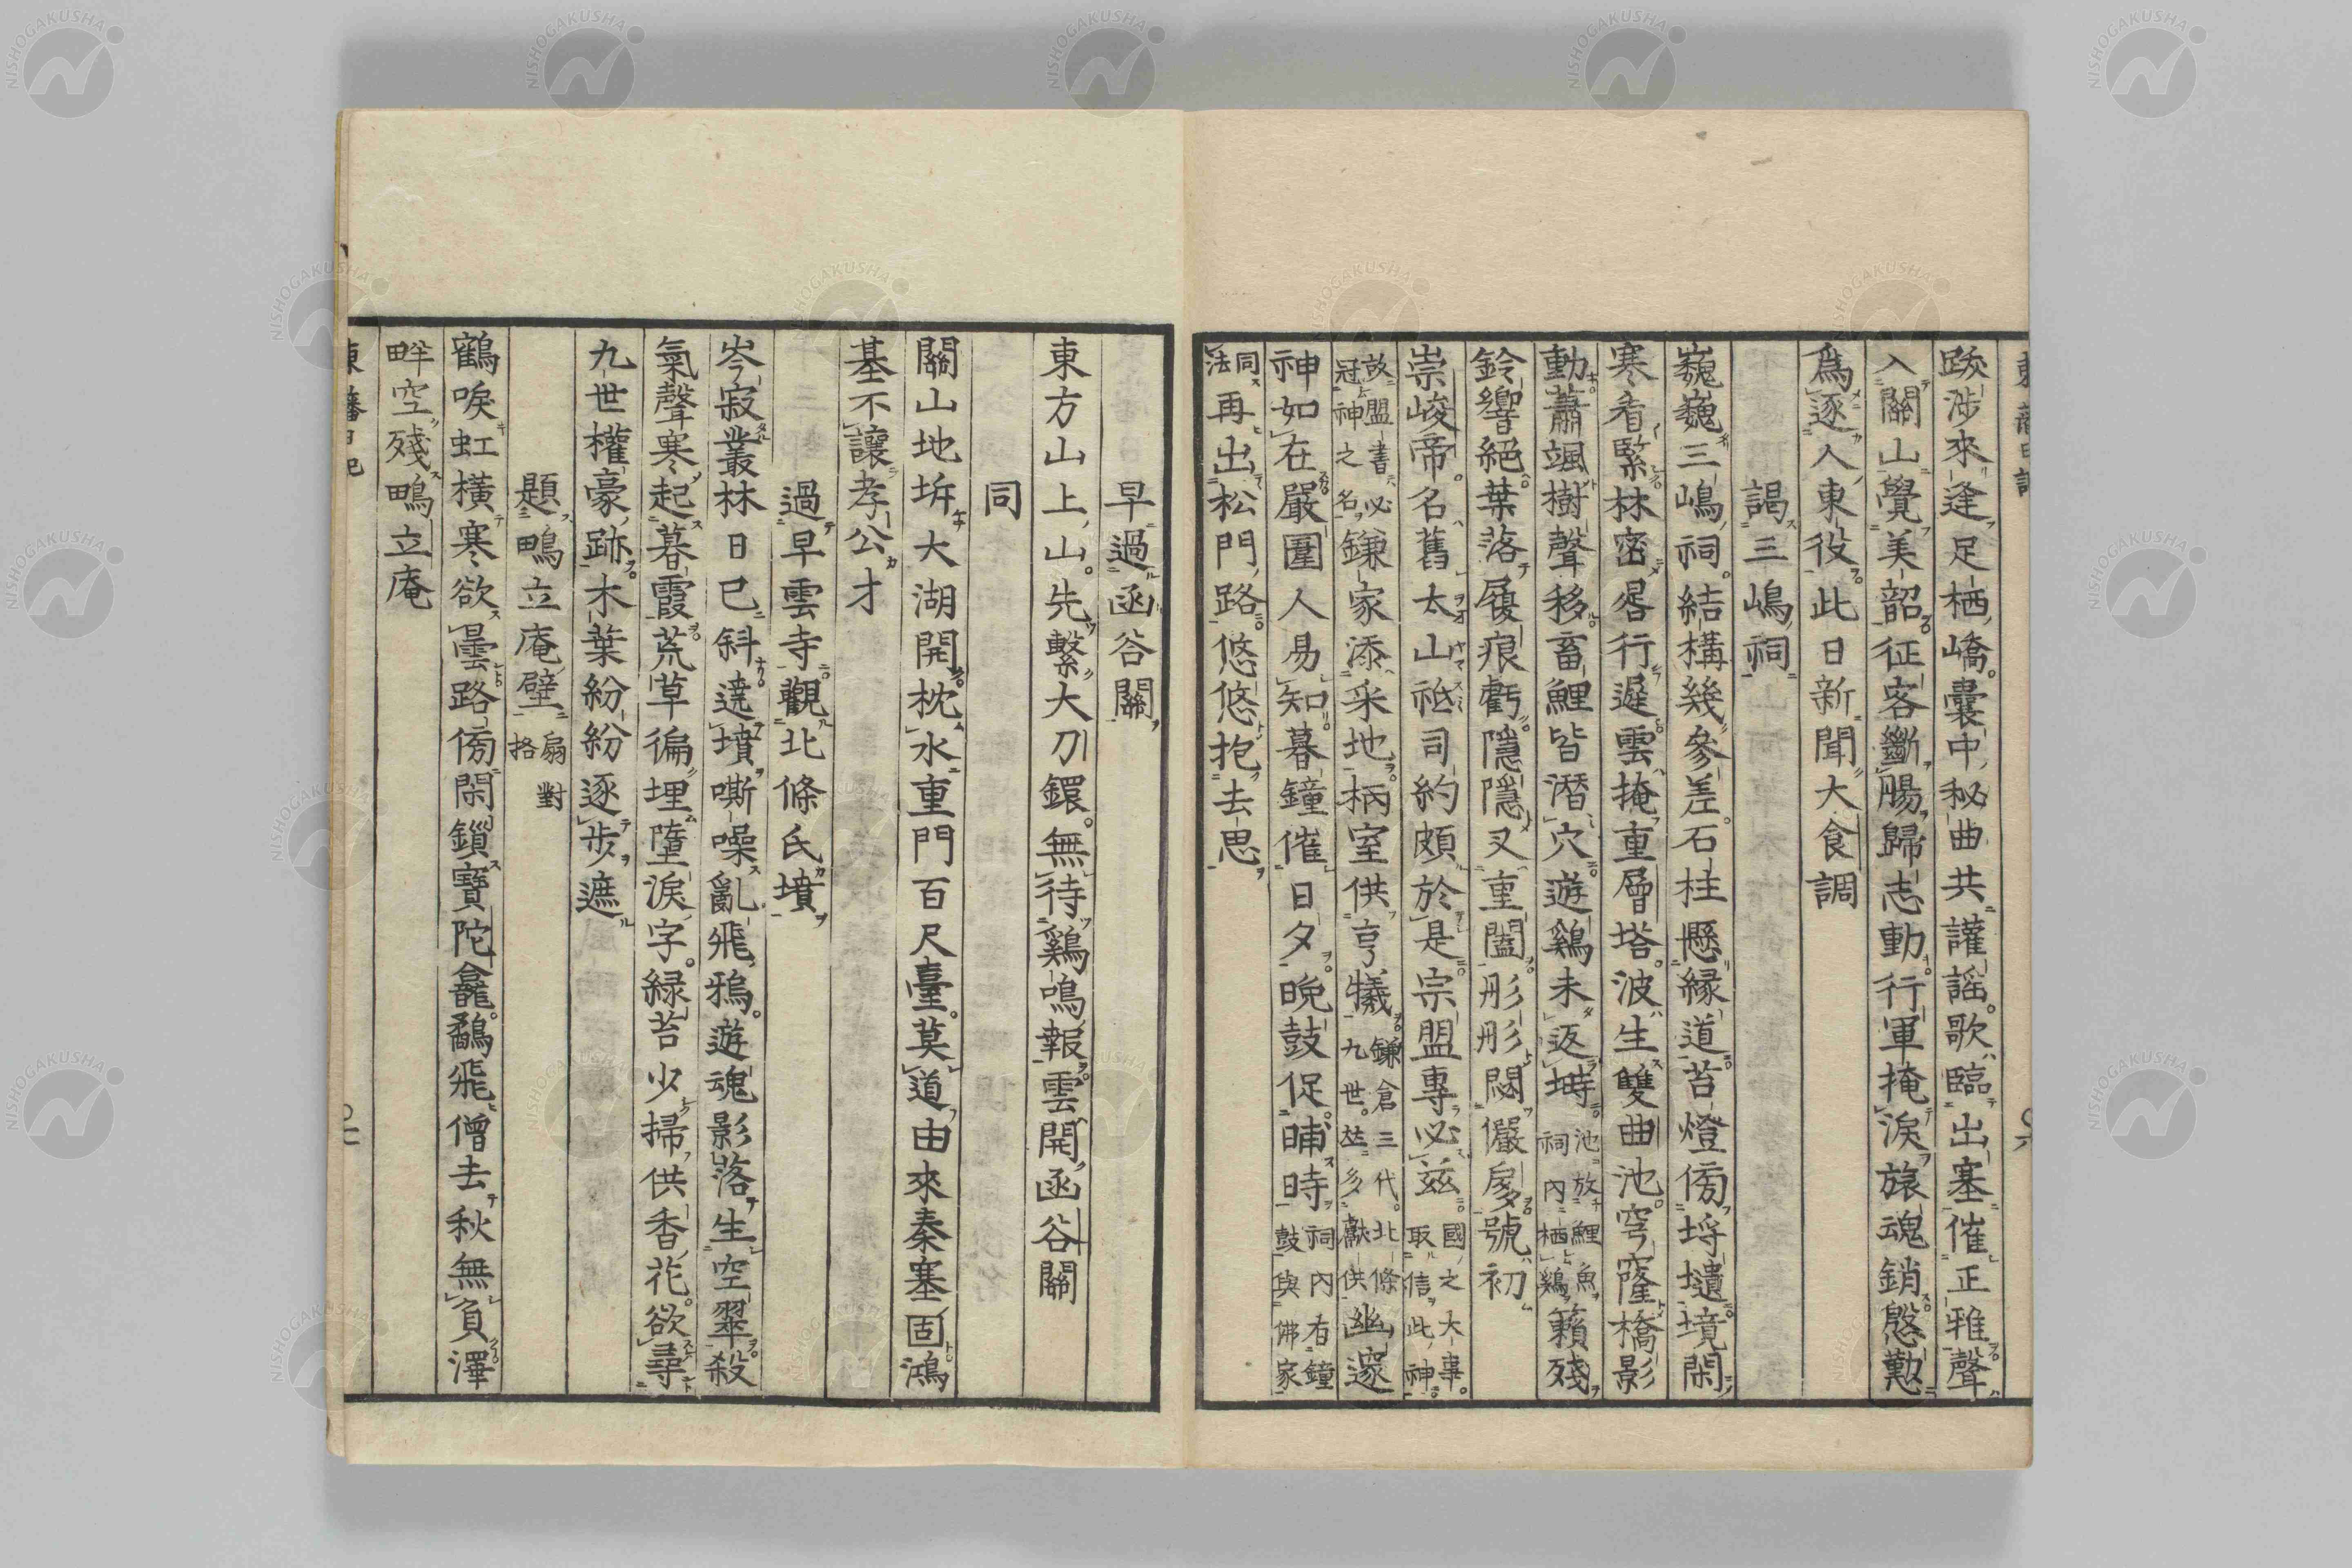 跋涉來逢足栖嶠囊中秘曲共讙謡歌臨出塞催正雅聲
入關山覺美韶征客斷腸歸志動行軍掩淚旅魂銷慇懃
爲逐人東役此日新聞大食調
謁三嶋祠
巍巍三嶋祠結構幾參差石柱懸縁道苔燈傍埒壝境閑
寒看緊林密晷行遲雲掩重層塔波生雙曲池穹窿橋影
動蕭颯樹聲移畜鯉皆潛穴遊鷄未返塒池放鯉魚祠内栖鷄籟殘
鈴響絕葉落履痕虧隱隱又重闔彤彤閟儼扅號初
崇峻帝名舊太山祗司約頗於是宗盟專必茲國之大事取信此神
故盟書必冠神之名鎌家添采地柄室供亨犧鎌倉三代北條九世㳫多獻供幽邃
神如在嚴圍人易知暮鐘催日夕晩鼓促晡時祠内有鐘鼓與佛家
同法再出松門路悠悠抱去思
早過函谷關
東方山上山先繫大刀鐶無待鷄鳴報雲開函谷關
同
關山地坼大湖開枕水重門百尺臺莫道由來秦塞固鴻
基不讓孝公才
過早雲寺觀北條氏墳
岑寂叢林日已斜遶墳嘶噪亂飛鴉遊魂影落生空翠殺
氣聲寒起暮霞荒草徧埋墮淚字緑苔少掃供香花欲尋
九世權豪跡木葉紛紛逐步遮
題鴫立庵壁扇對格
鶴唳虹橫寒欲曇路傍閑鎖寶陀龕鷸飛僧去秋無負澤
畔空殘鴫立庵